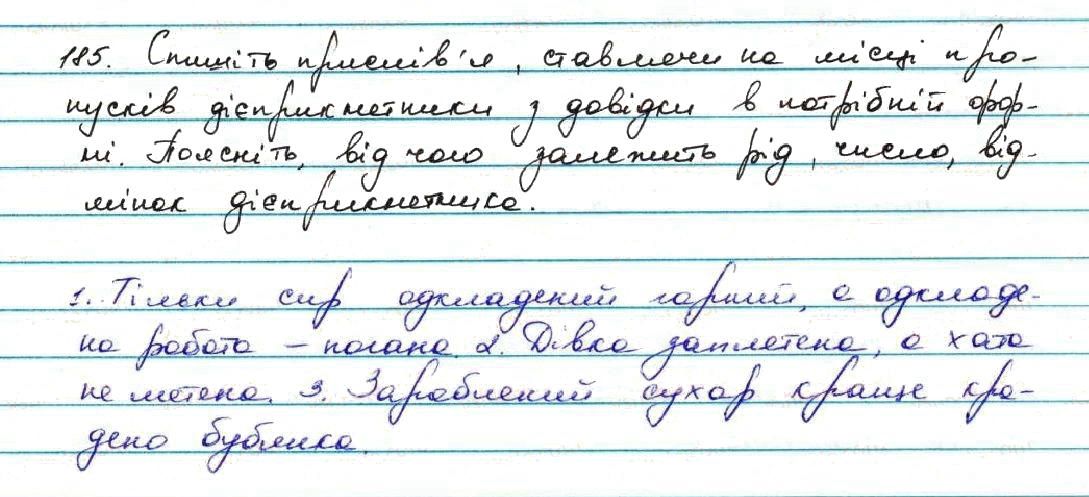 185. Спишіть прислів'я, ставлячи на місці про-
пусків дієприкметники з довідки в потрібній фор-
мі. Поясніть, від чого залежить рід, число, від-
мінок дієприкметника.
1. Тільки сир одкладений гарний, а одкладе-
на робота – погана. 2. Дівка заплетена, а хата
не метена. 3. Зароблений сухар краще кра-
дено бублика.